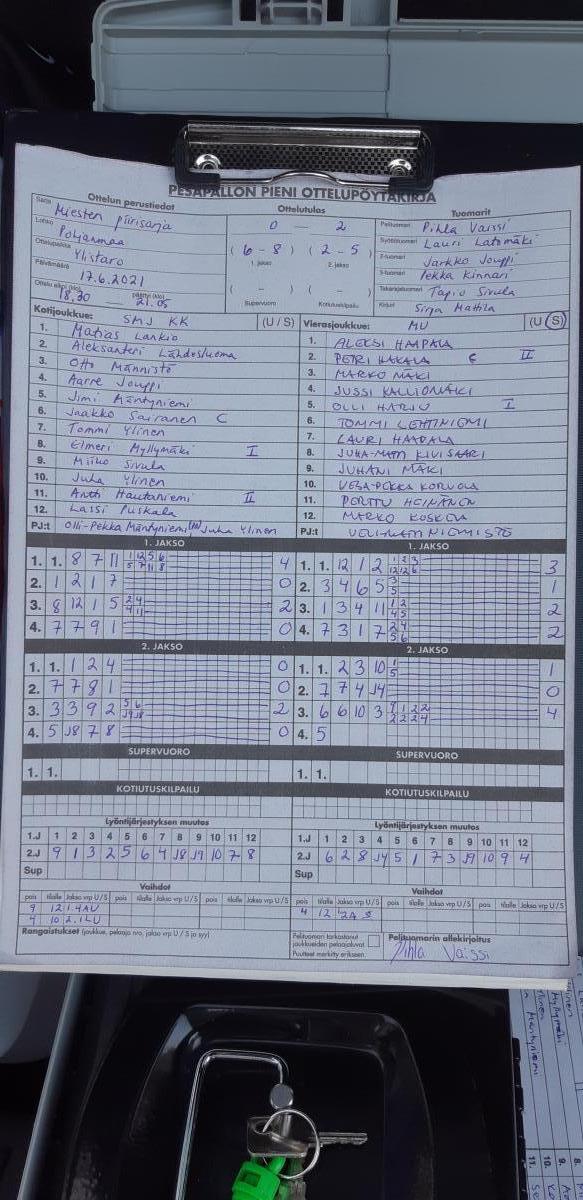 PESÄPALLON PIENI OTTELUPÖYTÄKIRJA
Ottelun perustiedot
Sarja Miesten piirisarja
Lohko Pohjanmaa
Ottelupaikka Ylistaro
Päivämäärä 17.6.2021
Ottelu alkoi (klo) 18.30 päättyi (klo) 21.05
Ottelutulos
0 — 2
( 6 - 8 ) ( 2 - 5 )
1. jakso 2. jakso
( - ) ( - )
Supervuoro Kotiutuskilpailu
Tuomarit
Pelituomari Pihla Väissi
Syöttötuomari Lauri Latomäki
2-tuomari Jarkko Jouppi
3-tuomari Pekka Kinnari
Takarajatuomari Tapio Sivula
Kirjuri Sirja Mattila
Kotijoukkue: SMJ KK (U / S)
1. Matias Lankio
2. Aleksanteri Lähdesluoma
3. Otto Männistö
4. Aarre Jouppi
5. Jimi Mäntyniemi
6. Jaakko Sairanen C
7. Tommi Ylinen
8. Elmeri Myllymäki I
9. Miiko Sivula
10. Juha Ylinen
11. Antti Hautaniemi II
12. Lassi Puskala
PJ:t Olli-Pekka Mäntyniemi Juha Ylinen
Vierasjoukkue: MU (U / S)
1. ALEKSI HAAPALA
2. PETRI HAKALA C II
3. MARKO MÄKI
4. JUSSI KALLIOMÄKI
5. OLLI HARJU I
6. TOMMI LEHTINIEMI
7. LAURI HAAPALA
8. JUHA-MATTI KIVISAARI
9. JUHANI MÄKI
10. VESA-PEKKA KORUOLA
11. PERTTU HEINÄNEN
12. MARKO KOSKELA
PJ:t VELI-MATTI NIEMISTÖ
1. JAKSO
1. 1. 8 7 11 1 12 5 6 4
5 7 11 8
2. 1 2 1 7 0
3. 8 12 1 5 2 4 2
4 11
4. 7 7 9 1 0
1. JAKSO
1. 1. 12 1 2 1 2 3 3
12 12 6
2. 3 4 6 5 3 1
5
3. 1 3 4 11 1 2 2
4 5
4. 7 3 1 7 2 4 2
5 6
2. JAKSO
1. 1. 1 2 4 0
2. 7 7 8 1 0
3. 3 3 9 2 5 6 2
J9 J8
4. 5 J8 7 8 0
2. JAKSO
1. 1. 2 3 10 1 1
5
2. 7 7 4 J4 0
3. 6 6 10 3 9 1 2 2 4
2 2 2 4
4. 5
SUPERVUORO
1. 1.
SUPERVUORO
1. 1.
KOTIUTUSKILPAILU
KOTIUTUSKILPAILU
Lyöntijärjestyksen muutos
1.J 1 2 3 4 5 6 7 8 9 10 11 12
2.J 9 1 3 2 5 6 4 J8 J9 10 7 8
Sup
Lyöntijärjestyksen muutos
1.J 1 2 3 4 5 6 7 8 9 10 11 12
2.J 6 2 8 J4 5 1 7 3 J9 10 9 4
Sup
Vaihdot
pois tilalle Jakso vrp U / S pois tilalle Jakso vrp U / S pois tilalle Jakso vrp U / S
9 12 1.4AU
4 10 2.1LU
Rangaistukset (joukkue, pelaaja nro, jakso vrp U / S ja syy)
Vaihdot
pois tilalle Jakso vrp U / S pois tilalle Jakso vrp U / S pois tilalle Jakso vrp U / S
4 12 2A S
Pelituomari tarkastanut joukkueiden pelaajaluvat
Puutteet merkitty erikseen.
Pelituomarin allekirjoitus
Pihla Väissi